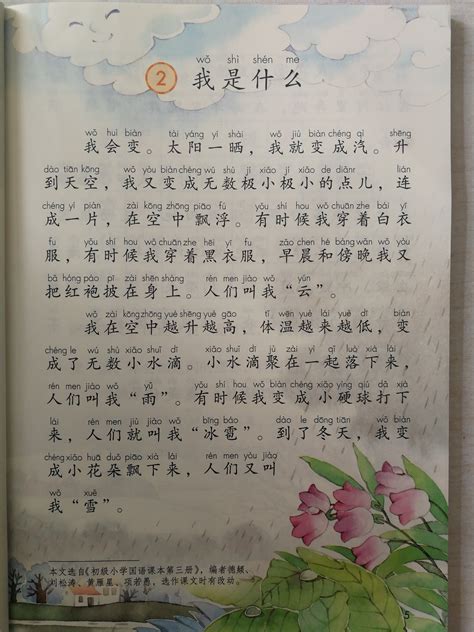 wǒ shì shén me
2 我是什么
wǒ huì biàn tài yáng yí shài wǒ jiù biàn chéng qì shēng
我会变。太阳一晒，我就变成汽。升
dào tiān kōng wǒ yòu biàn chéng wú shù jí xiǎo jí xiǎo de diǎn ér lián
到天空，我又变成无数极小极小的点儿，连
chéng yí piàn zài kōng zhōng piāo fú yǒu shí hou wǒ chuān zhe bái yī
成一片，在空中飘浮。有时候我穿着白衣
fu yǒu shí hou wǒ chuān zhe hēi yī fu zǎo chen hé bàng wǎn wǒ yòu
服，有时候我穿着黑衣服，早晨和傍晚我又
bǎ hóng páo pī zài shēn shàng rén men jiào wǒ yún
把红袍披在身上。人们叫我“云”。
wǒ zài kōng zhōng yuè shēng yuè gāo tǐ wēn yuè lái yuè dī biàn
我在空中越升越高，体温越来越低，变
chéng le wú shù xiǎo shuǐ dī xiǎo shuǐ dī jù zài yì qǐ luò xià lái
成了无数小水滴。小水滴聚在一起落下来，
rén men jiào wǒ yǔ yǒu shí hou wǒ biàn chéng xiǎo yìng qiú dǎ xià
人们叫我“雨”。有时候我变成小硬球打下
lái rén men jiù jiào wǒ bīng báo dào le dōng tiān wǒ biàn
来，人们就叫我“冰雹”。到了冬天，我变
chéng xiǎo huā duǒ piāo xià lái rén men yòu jiào
成小花朵飘下来，人们又叫
wǒ xuě
我“雪”。
本文选自《初级小学国语课本第三册》，编者德颎、
刘松涛、黄雁星、项若愚，选作课文时有改动。
5